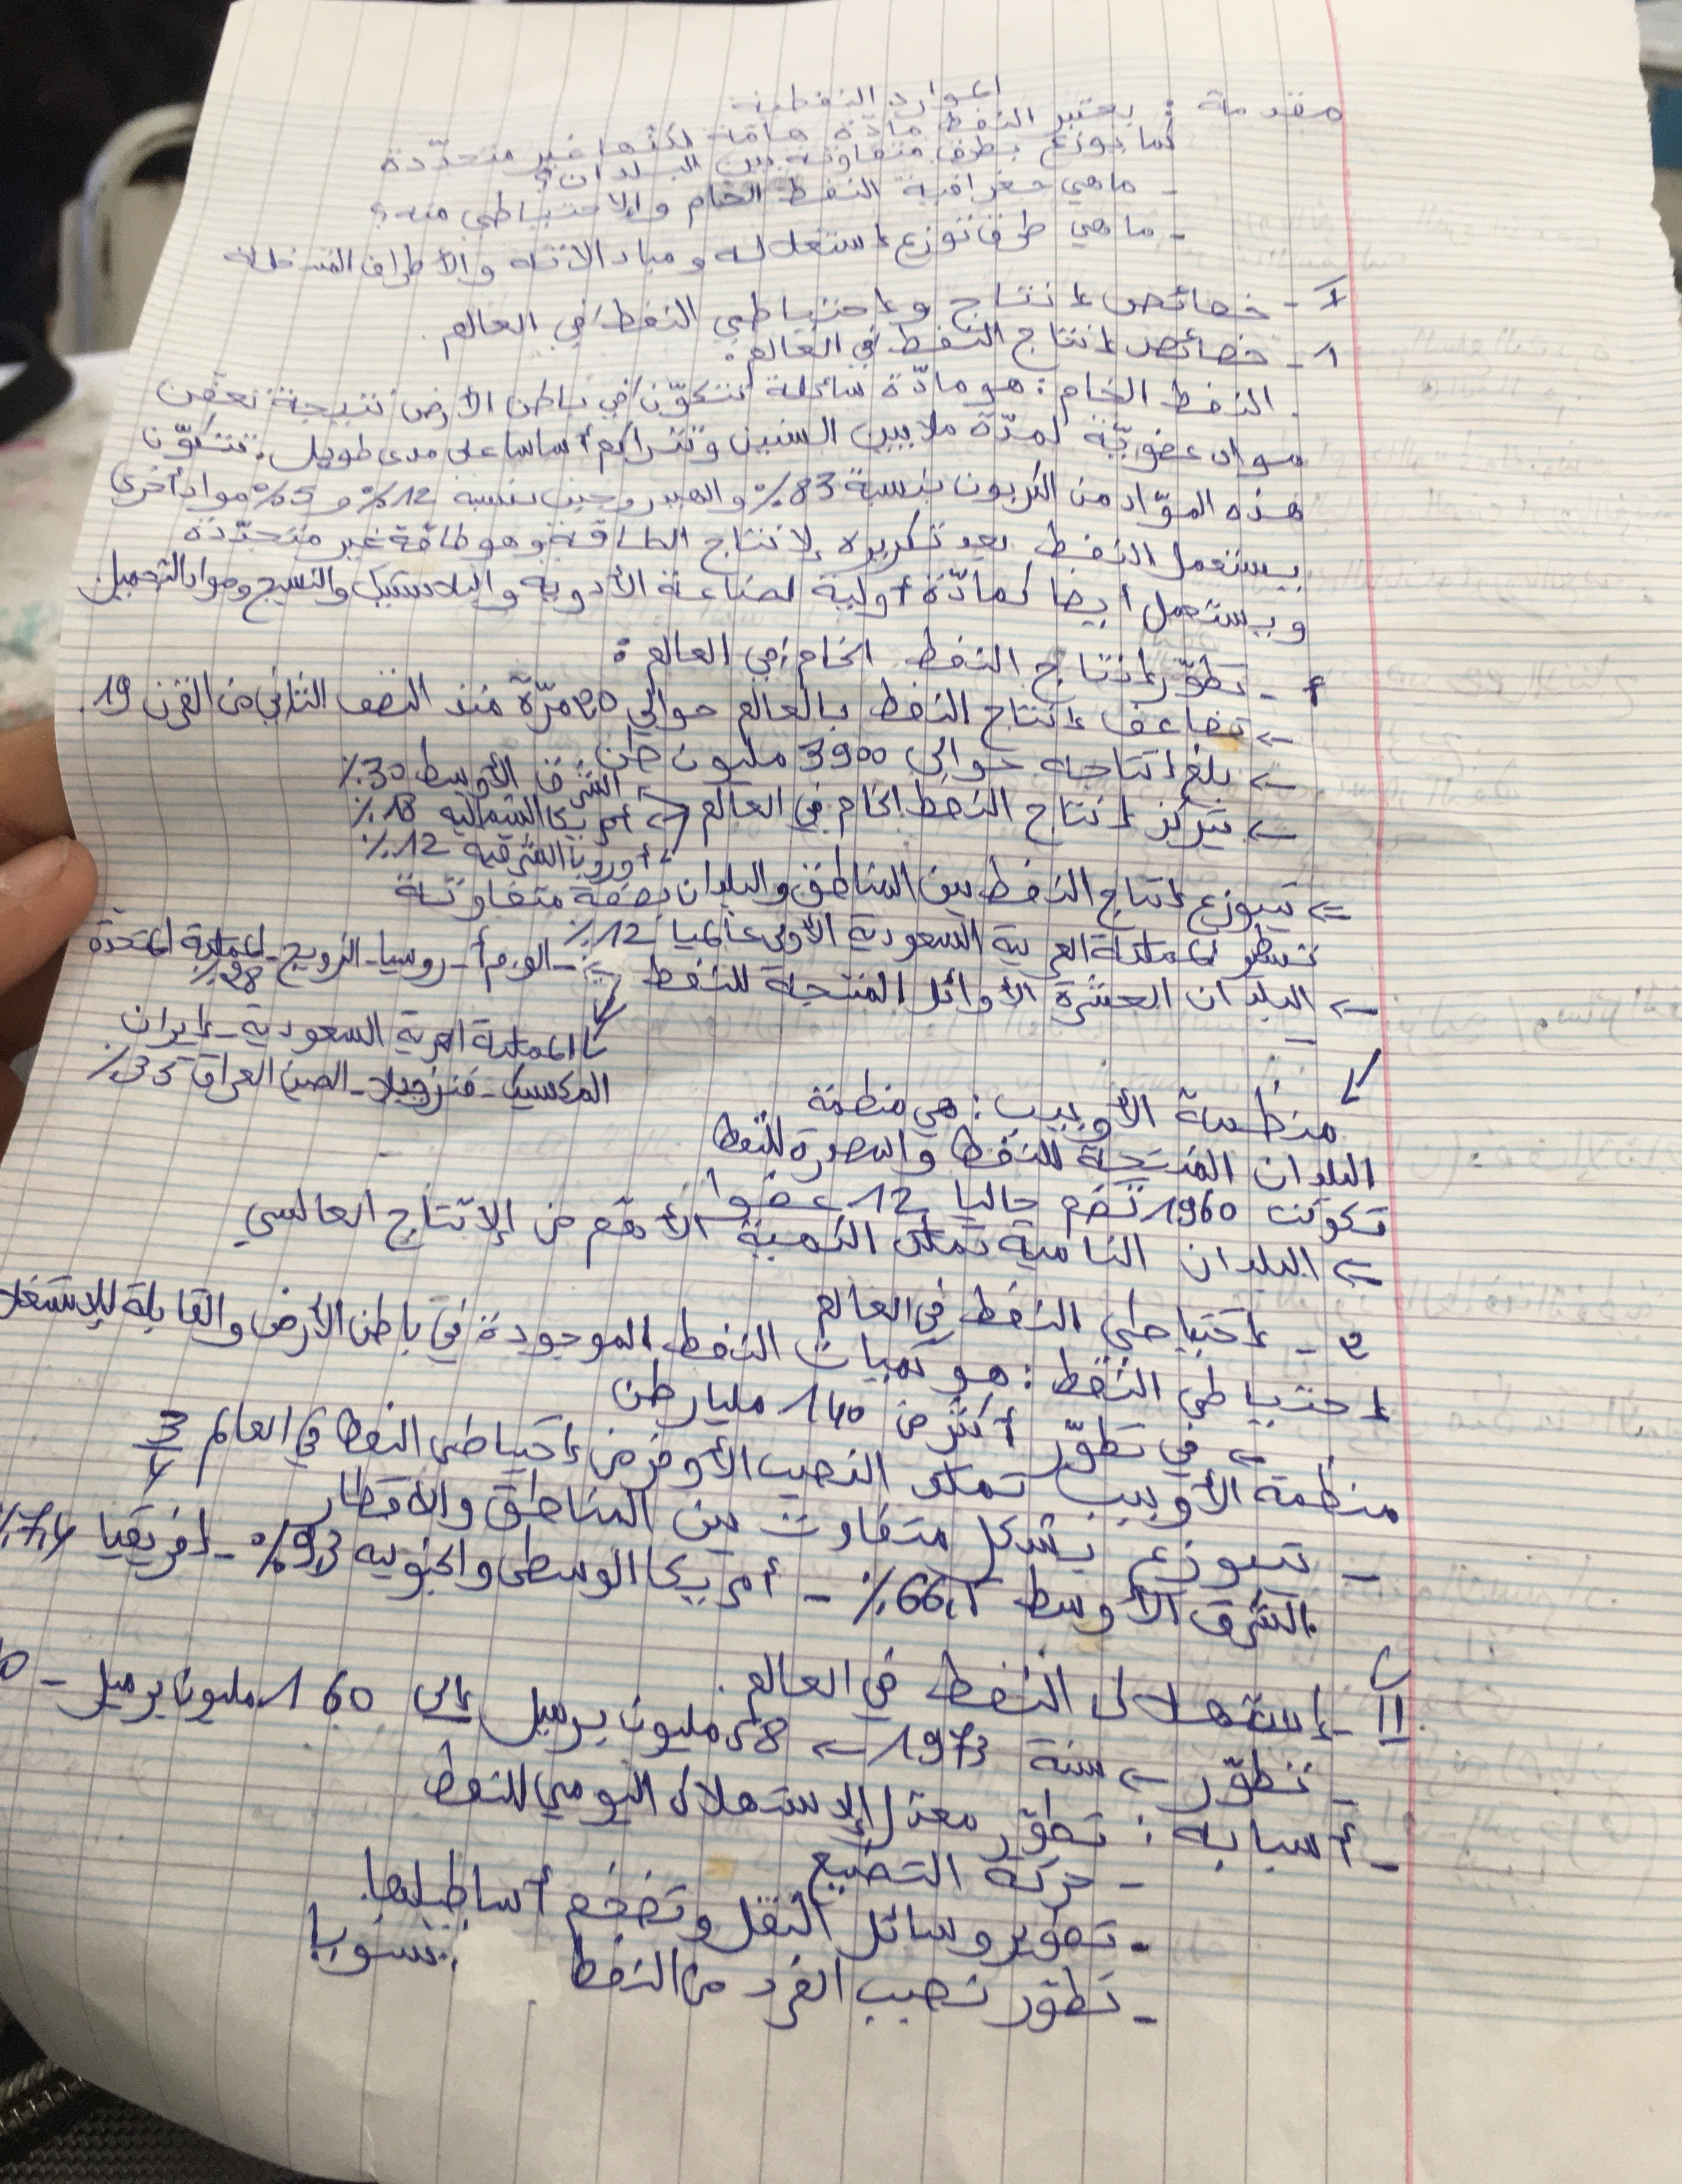 الموارد النفطية
مقدمة : يعتبر النفط مادّة هامّة لكنّها غير متجدّدة
كما يوزع بطرق متفاوتة بين البلدان
- ماهي جغرافية النفط الخام والإحتياطي منه؟
- ماهي طرق توزع إستغلاله و مبادلاته والأطراف المتدخلة
I - خصائص إنتاج وإحتياطي النفط في العالم.
1 - خصائص إنتاج النفط في العالم:
النفط الخام : هو مادّة سائلة تتكوّن في باطن الأرض نتيجة تعفّن
مواد عضويّة لمدّة ملايين السنين وتتراكم أساسا على مدى طويل. تتكوّن
هذه الموّاد من الكربون بنسبة 83٪ والهيدروجين بنسبة 12٪ و 5٪ مواد أخرى
يستعمل النفط بعد تكريره لإنتاج الطاقة وهو طاقة غير متجدّدة
ويستعمل أيضا كمادّة أولية لصناعة الأدوية والبلاستيك والنسيج ومواد التجميل
2 - تطوّر إنتاج النفط الخام في العالم :
← تضاعف إنتاج النفط بالعالم حوالي 20 مرّة منذ النصف الثاني من القرن 19.
← بلغ إنتاجه حوالي 3900 مليون طن
← يتركز إنتاج النفط الخام في العالم ← الشرق الأوسط 30٪
← أمريكا الشمالية 18٪
← أوروبا الشرقية 12٪
⇐ يتوزع إنتاج النفط بين المناطق والبلدان بصفة متفاوتة
المملكة العربية السعودية الأولى عالميا 12٪
← البلدان العشرة الأوائل المنتجة للنفط ← الو.م.أ - روسيا - النرويج - المملكة المتحدة 28٪
المملكة العربية السعودية - إيران
المكسيك - فنزويلا - الصين العراق 35٪
منظمة الأوبيب : هي منظمة
البلدان المنتجة للنفط والمصدرة للنفط
تكونت 1960 تضم حاليا 12 عضوا
⇐ البلدان النامية تملك الكمية الأهم من الإنتاج العالمي
2 - إحتياطي النفط في العالم
إحتياطي النفط : هو كميات النفط الموجودة في باطن الأرض والقابلة للإستغلا
← في تطوّر أكثر من 140 مليار طن
منظمة الأوبيب تملك النصيب الأوفر من إحتياطي النفط في العالم 3/4
- يتوزع بشكل متفاوت بين المناطق والأقطار
الشرق الأوسط 66,1٪ - أمريكا الوسطى والجنوبية 9,3٪ - إفريقيا 7,4٪
II - إستهلاك النفط في العالم.
- تطوّر ← سنة 1973 ← 58 مليون برميل إلى 160 مليون برميل -
- أسبابه : تطوّر معدل الإستهلاك اليومي للنفط
- حركة التصنيع
- تطوير وسائل النقل وتضخم أساطيلها.
- تطوّر نصيب الفرد من النفط سنويا